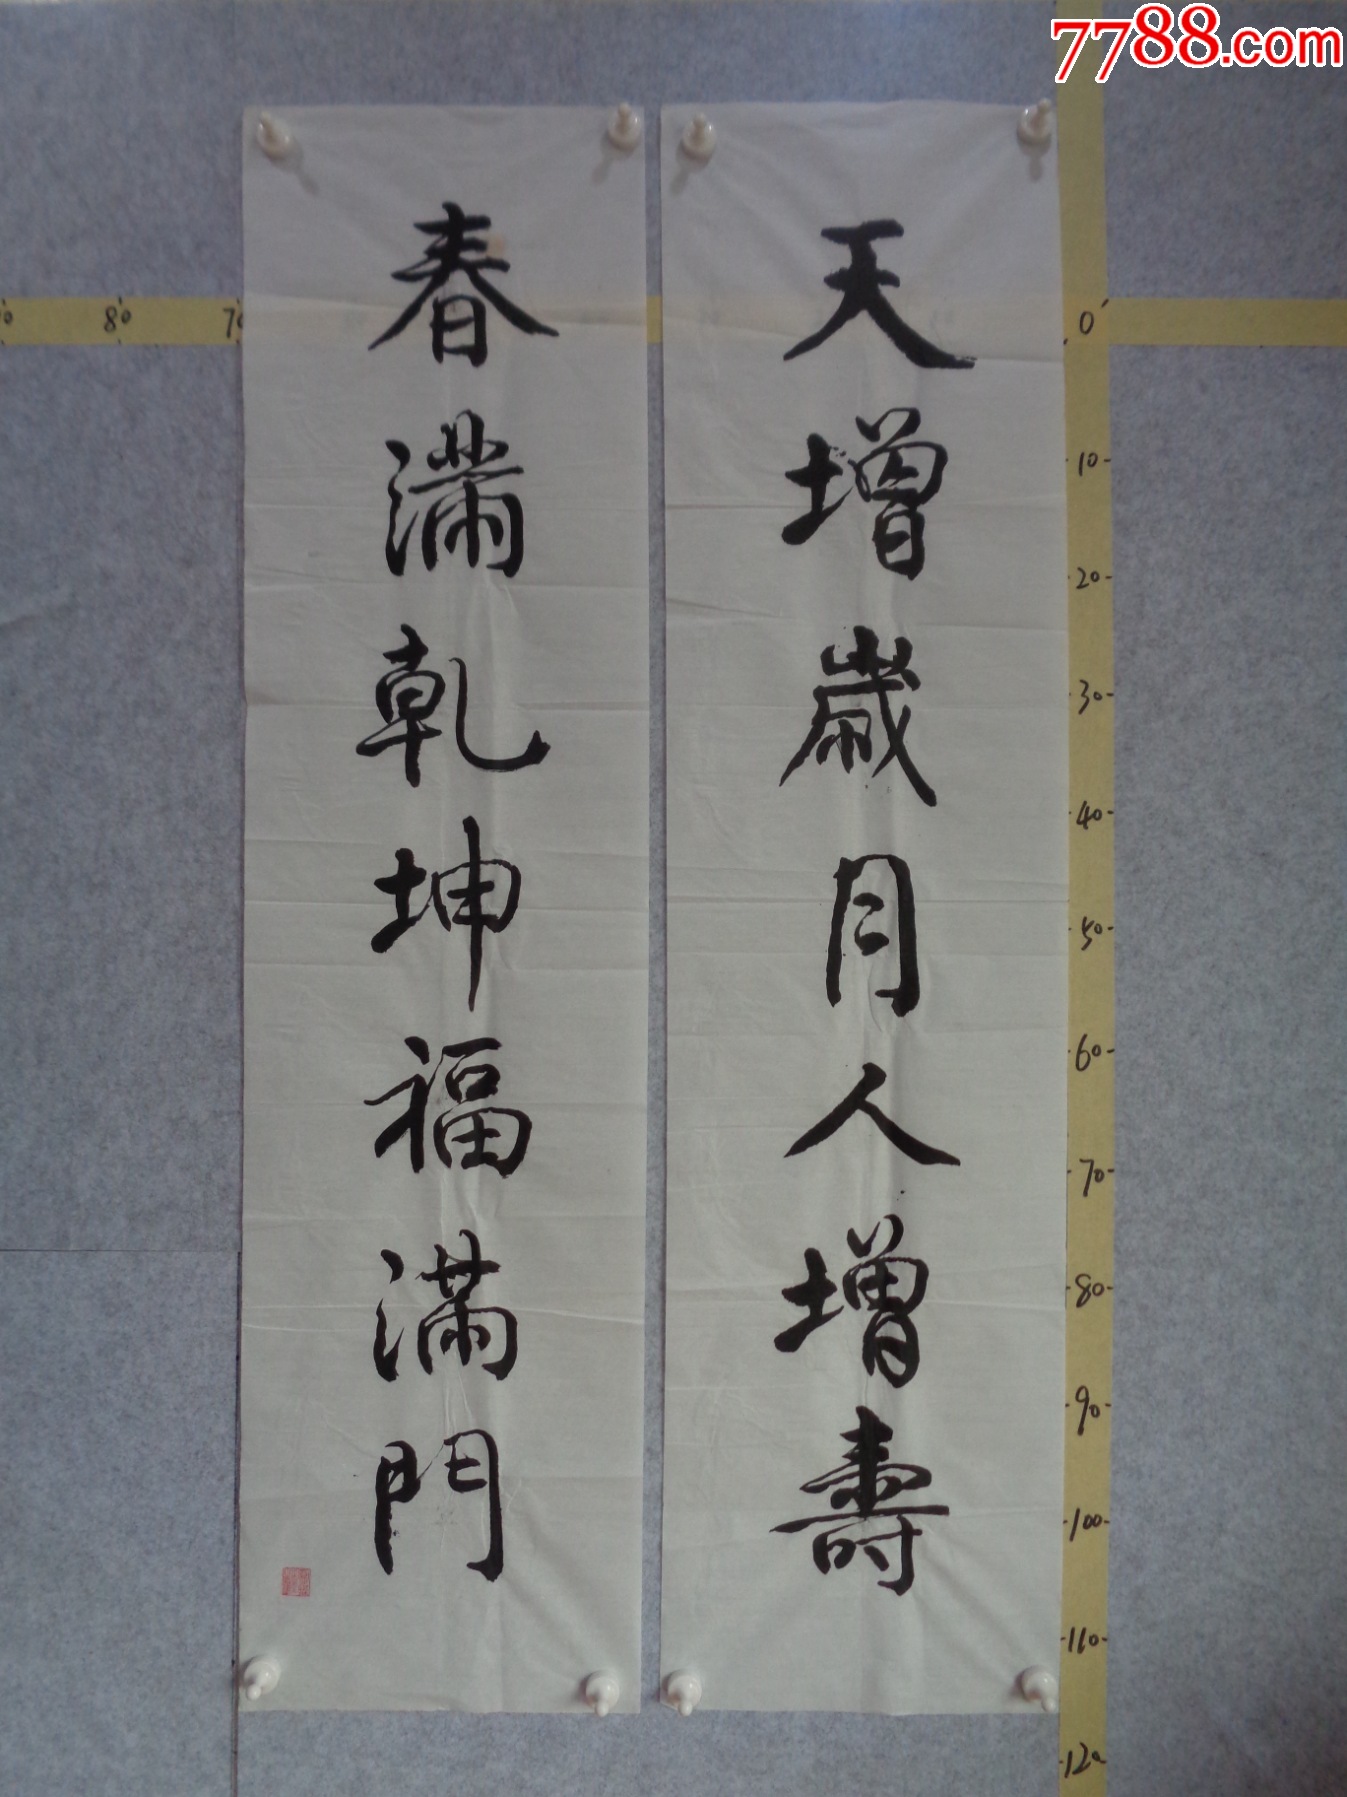 7788.com
天增歲月人增壽
春滿乾坤福滿門
80
70
0
10
20
30
40
50
60
70
80
90
100
110
120